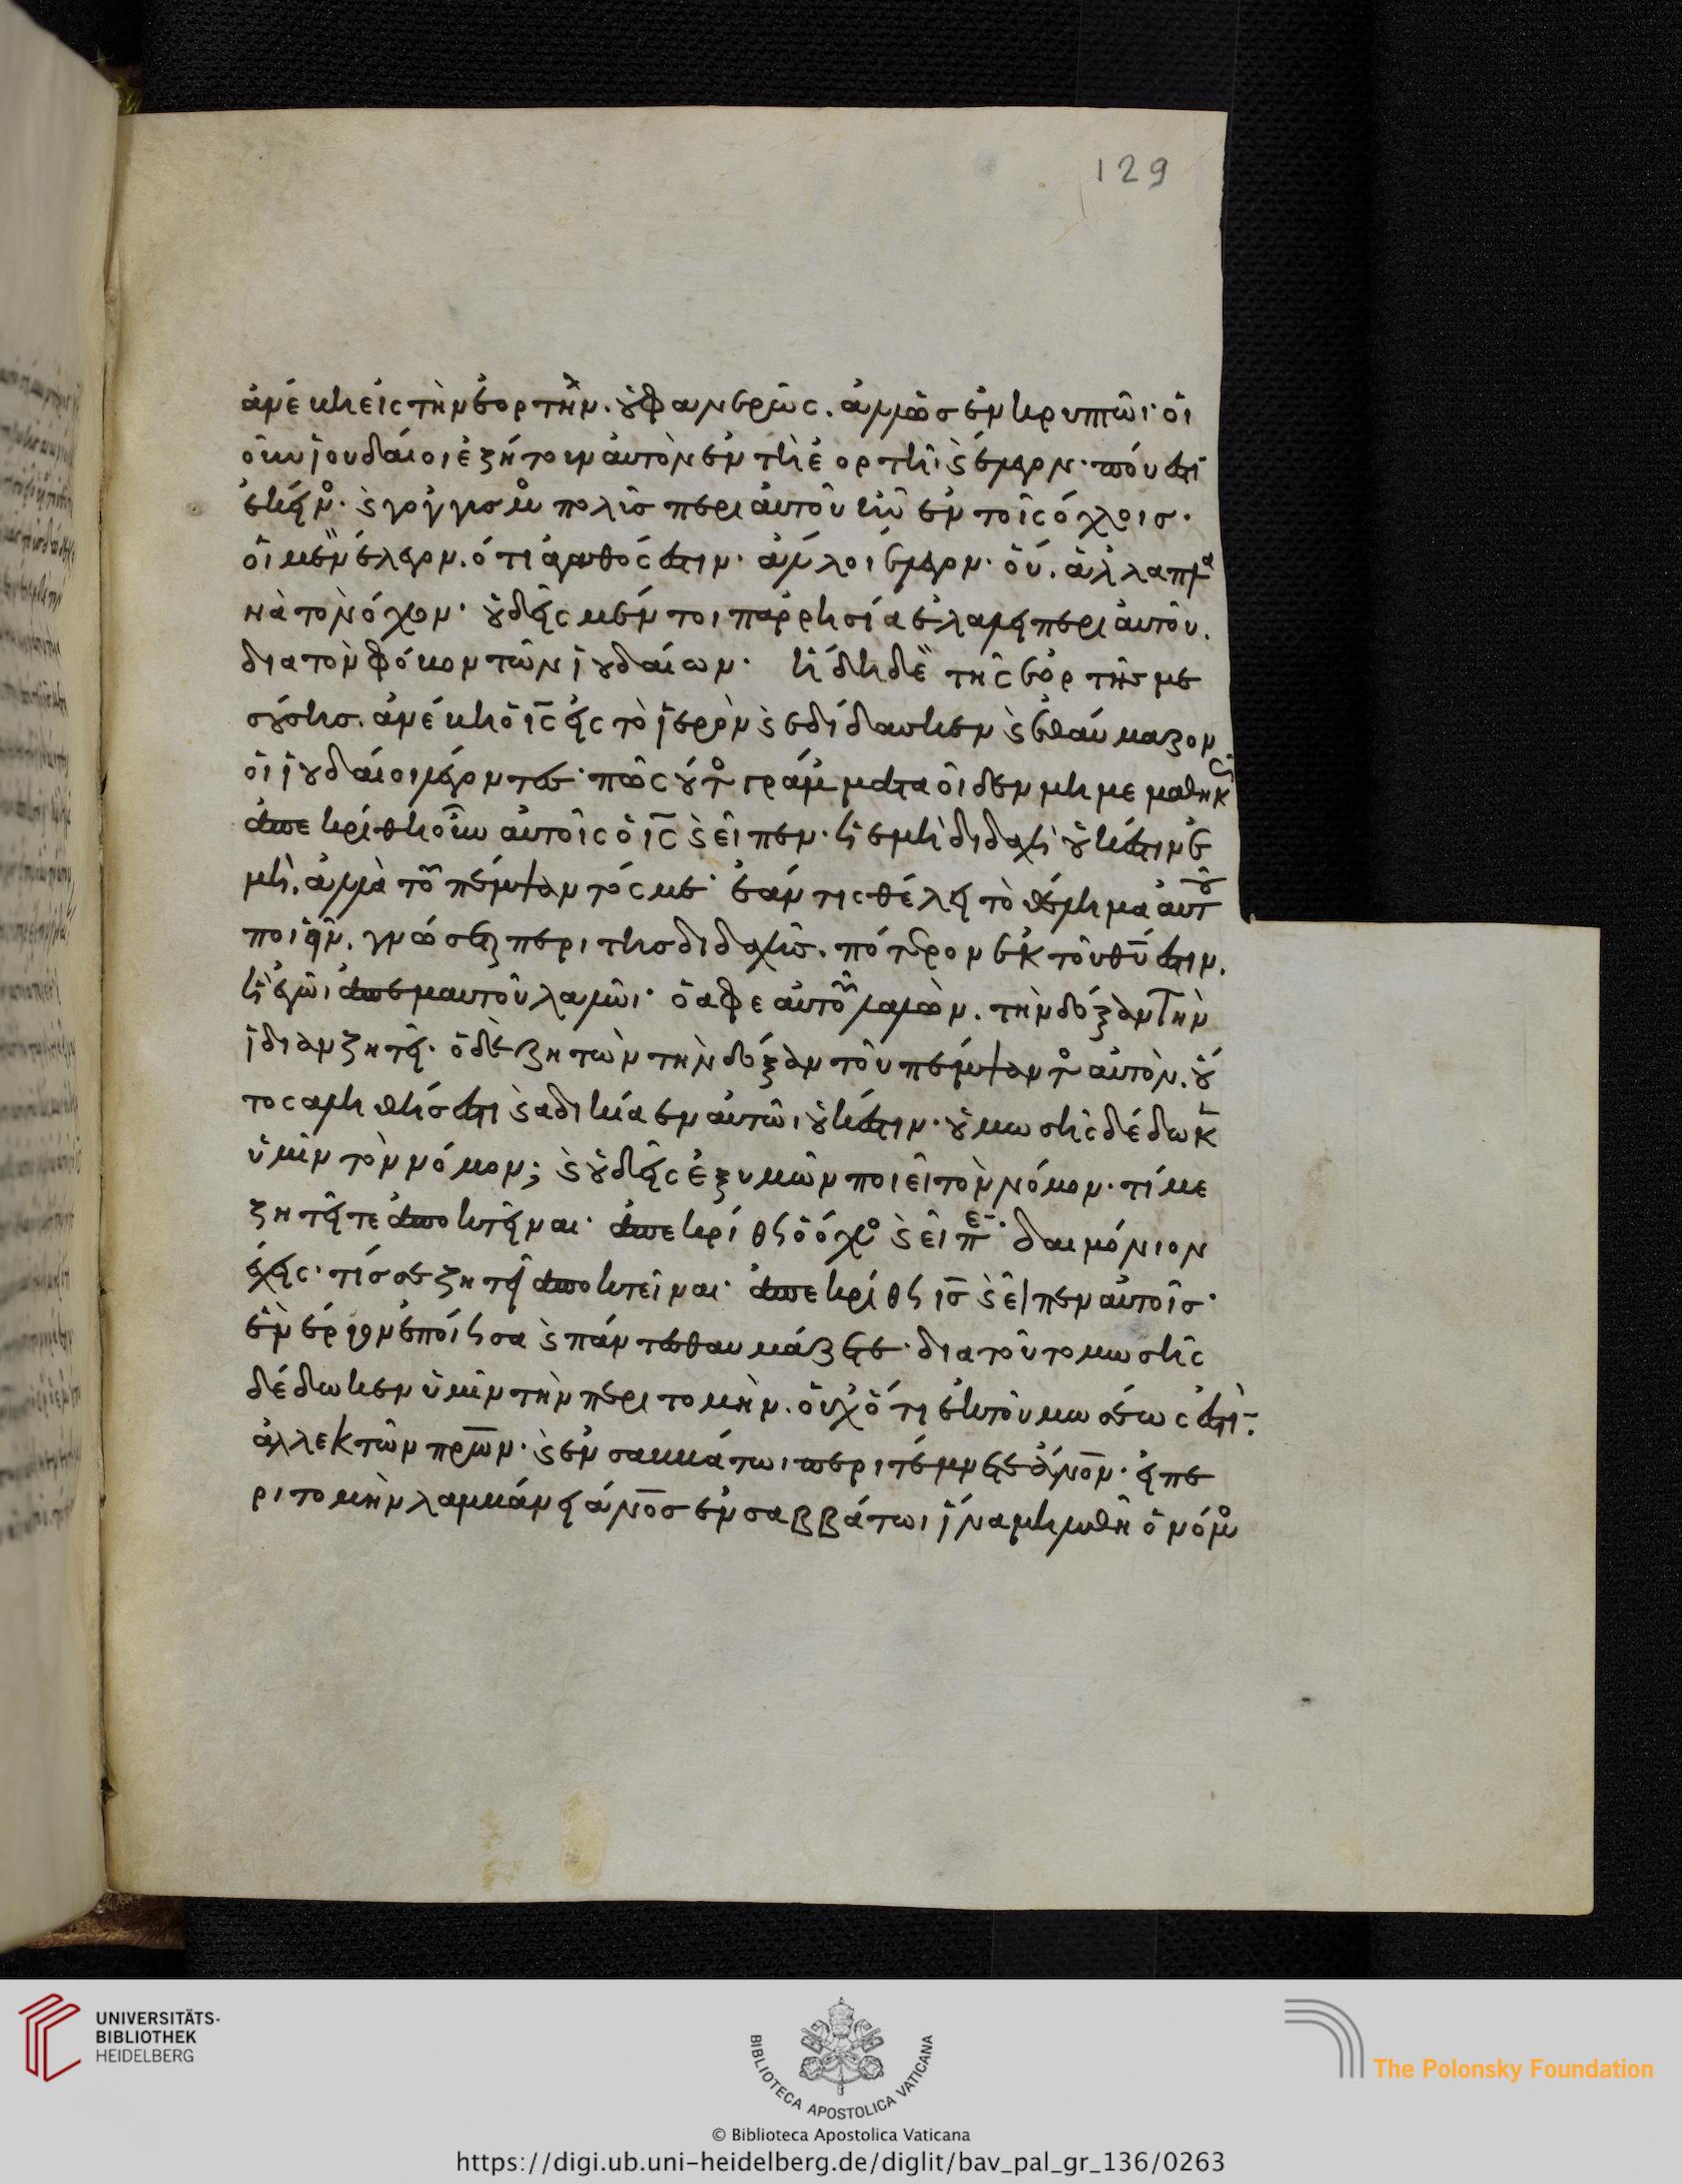 129
ἀνέβη εἰς τὴν ἑορτὴν. οὐ φανερῶς. ἀλλ' ὡς ἐν κρυπτῶι· οἱ
οὖν ἰουδαῖοι ἐζήτουν αὐτὸν ἐν τῆ ἑορτῆ· καὶ ἔλεγον· ποῦ ἐστὶ
ἐκεῖνος· καὶ γογγυσμὸς πολὺς περι αὐτοῦ ἦν ἐν τοῖς ὄχλοις·
οἱ μὲν ἔλεγον. ὅτι ἀγαθός ἐστιν· ἄλλοι ἔλεγον· οὔ. ἀλλα πλα
νὰ τὸν ὄχλον· οὐδεὶς μέντοι παρρησία ἐλάλει περι αὐτοῦ.
δια τον φόβον τῶν ἰουδαίων· ἤδη δὲ τῆς ἑορτῆς με
σούσης. ἀνέβη ὁ ις εἰς τὸ ἱερὸν καὶ εδίδασκεν καὶ ἐθαύμαζον
οἱ ἰουδαῖοι λέγοντες· πῶς οὗτος γράμματα οἶδεν μη μεμαθηκώς
ἀπεκρίθη οὖν αὐτοῖς ὁ ις καὶ εἶπεν· ἡ εμὴ διδαχὴ οὐκ ἔστιν ἐ
μὴ. ἀλλὰ τοῦ πέμψαντός με· ἐάν τις θέλη τὸ θέλημα αὐτοῦ
ποιεῖν. γνώσεται περι της διδαχῆς. πότερον ἐκ τοῦ θυ ἐστιν.
ἢ ἐγὼι ἀπ' εμαυτοῦ λαλῶι· ὁ αφ' ἑαυτοῦ λαλῶν. τὴν δόξαν τὴν
ἰδίαν ζητεῖ· ὁ δὲ ζητῶν τὴν δόξαν τοῦ πέμψαντος αὐτὸν. οὗ
τος αληθής ἐστι καὶ αδικία εν αὐτῶι οὐκ ἔστιν· οὐ μωσῆς δέδωκεν
ὑμῖν τὸν νόμον; καὶ οὐδεὶς ἐξ υμῶν ποιεῖ τὸν νόμον· τί με
ζητεῖτε ἀποκτεῖναι· ἀπεκρίθη ὁ ὄχλος καὶ εἶπεν· δαιμόνιον
ἔχεις· τίς σε ζητεῖ ἀποκτεῖναι· ἀπεκρίθη ις καὶ εἶπεν αὐτοῖς·
ἓν ἔργον ἐποίησα καὶ πάντες θαυμάζετε· δια τοῦτο μωσῆς
δέδωκεν ὑμῖν τὴν περιτομὴν. οὐχ ὅτι ἐκ τοῦ μωσέως ἐστὶν·
ἀλλ' εκ τῶν πρων· καὶ ἐν σαββάτωι περιτέμνετε ἄνον· εἰ πε
ριτομὴν λαμβάνει ἄνος εν σαββάτωι ἵνα μη λυθῆ ὁ νόμος
UNIVERSITÄTS-
BIBLIOTHEK
HEIDELBERG
BIBLIOTECA APOSTOLICA VATICANA
The Polonsky Foundation
© Biblioteca Apostolica Vaticana
https://digi.ub.uni-heidelberg.de/diglit/bav_pal_gr_136/0263